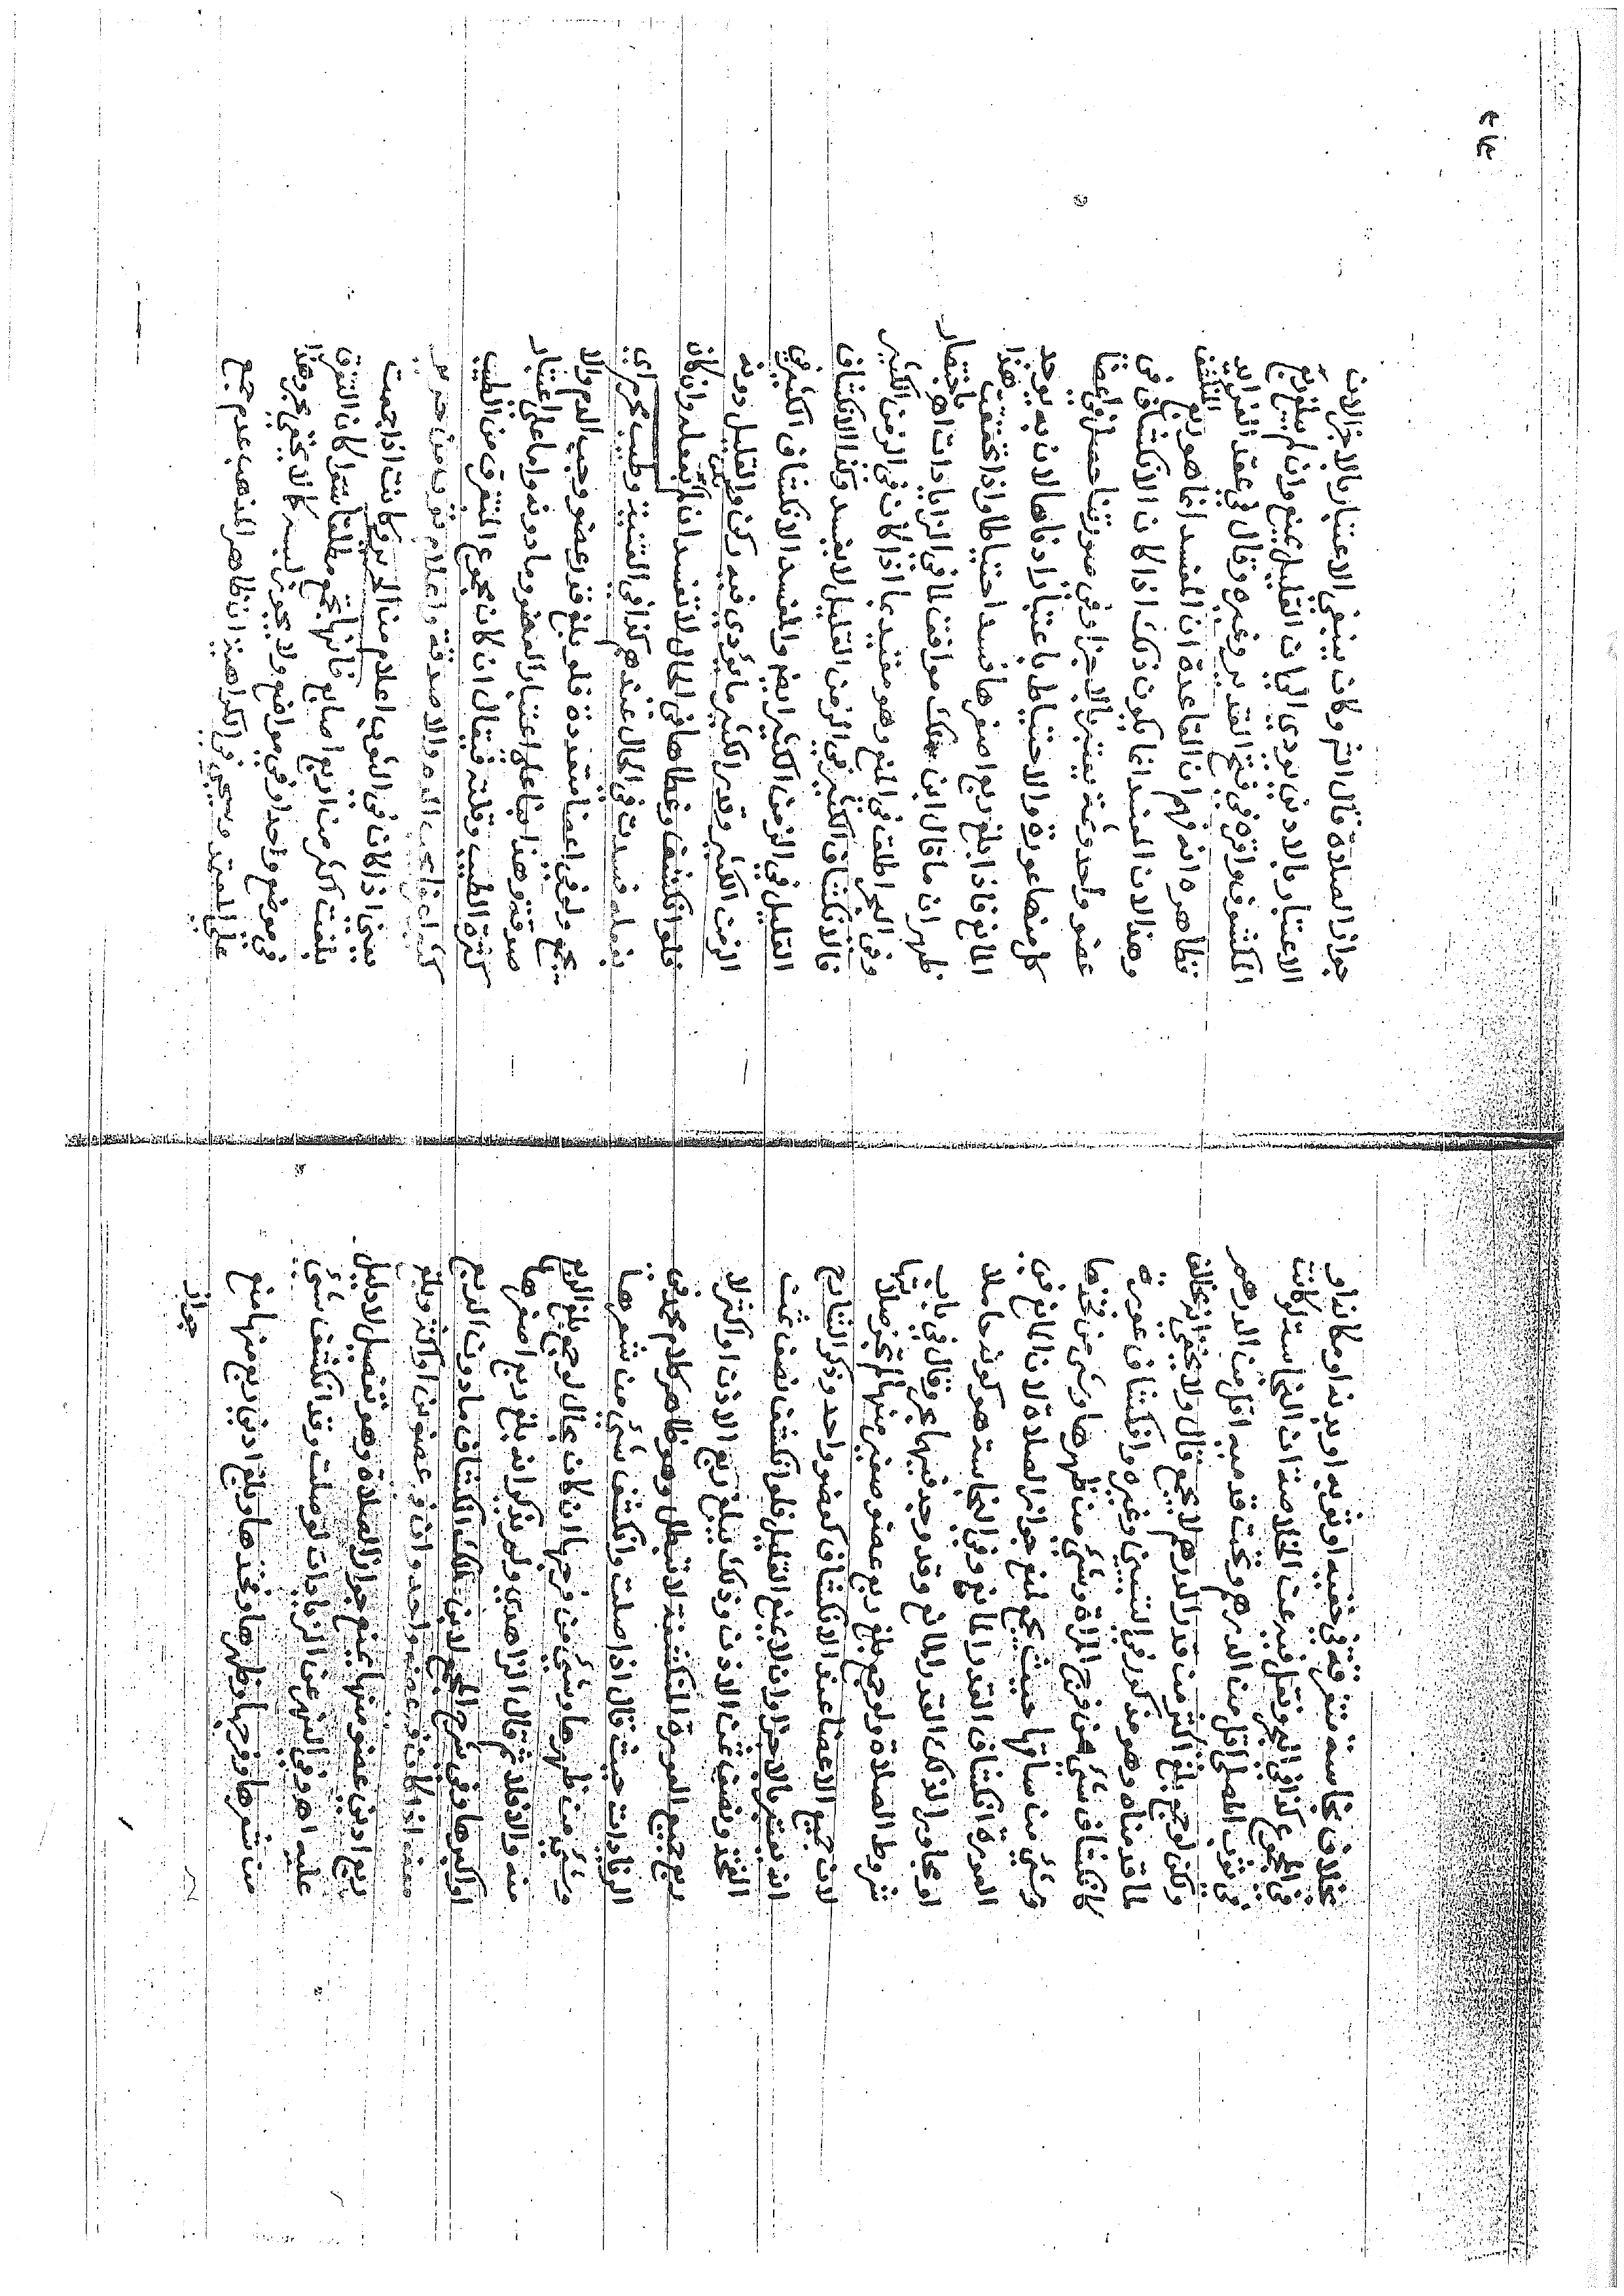 بخلاف نجاسة متفرقة في خفيه او ثوبه او بدنه او مكانه او
في المجموع كذا في البحر ونقل فيه عن الخلاصة ان النجاسة لو كانت
في ثوب المصلي اقل من الدرهم وتحت قدميه اقل من الدرهم
ولكن لو جمع بلغ اكثر من قدر الدرهم لا يجمع قال ولا يخفى انه يخالف
لما قدمناه وهو مذكور في التبيين وغيره وانكشاف عورة
كانكشاف شيء من فرج المراة وشيء من ظهرها وشيء من فخذها
وشيء من ساقها حيث يجمع لمنع جواز الصلاة لان المانع في
العورة انكشاف القدر المانع وفي النجاسة هو كونه حاملا
او مجاورا لذلك القدر المانع وقد وجد فيهما بحر وقال في باب
شروط الصلاة ولو جمع بلغ ربع عضو صغير منها لم تجز صلاتها
لان جميع الاعضا عند الانكشاف كعضو واحد وذكر الشارح
انه يعتبر بالاجزا لان لا يمنع القليل فلو انكشف نصف ثمن
الفخذ ونصف ثمن الاذن وذلك يبلغ ربع الاذن او اكثر لا
ربع جميع العورة المنكشفة لا تبطل وهو ظاهر كلام محمد في
الزيادات حيث قال اذا صلت وانكشف شيء من شعرها
وشيء من ظهرها وشيء من فرجها ان كان بحال لو جمع بلغ الربع
منه والا فلا ثم قال الزاهدي ولم يذكر انه بلغ ربع اصغرها
او اكبرها وفي شرح المجمع لابن ملك انكشاف ما دون الربع
معفو اذا كان في عضو واحد وان في عضوين او اكثر وبلغ
ربع ادنى عضو منها يمنع جواز الصلاة وهو تفصيل لا دليل
عليه اهـ وفي النهر عن الزيادات لو صلت وقد انكشف شيء
من شعرها وفرجها وظهرها وفخذها وبلغ ادنى ربع منها منع
جواز
جواز الصلاة قال وكان ينبغي الاعتبار بالاجزا لان
الاعتبار بالادنى يؤدي الى ان القليل يمنع وان لم يبلغ ربع
المكشوف واقره في فتح القدير وغيره وقال في عقد الفرائد
ظاهره انه فهم ان القاعدة ان المفسد انما هو ربع المنكشف
وهذا لان المفسد انما يكون ذلك اذا كان الانكشاف في
عضو واحد وثمة يعتبر بالاجزا وفي صورتنا حصل في اعضا
كل منها عورة والاحتياط باعتبار ادناها لان به يوجد
المانع فاذا بلغ ربع اصغرها فسد احتياطا واذا تحققت هذا
ظهر ان ما قال ابن ملك موافق لما في الزيادات اهـ باختصار
وفي البحر اطلق في المنع وهو مقيد بما اذا كان في الزمن الكثير
فالانكشاف الكثير في الزمن القليل لا يفسد وكذا الانكشاف
القليل في الزمن الكثير ايضا والمفسد الانكشاف الكثير في
الزمن الكثير وقدر الكثير ما يؤدي فيه ركن والقليل دونه
فلو انكشف وغطاها في الحال لا تفسد ان لم يكن بفعله وان كان
بفعله فسدت في الحال عندهم كذا في القنية وطيب محرم اي
يجمع ولو في اعضا متعددة فلو بلغ قدر عضو وجب الدم والا
صدقة وهذا بناء على اعتبار العضو وما دونه واما على اعتبار
كثرة الطيب وقلته فيقال ان كان مجموع المتفرق من الطيب
كثيرا عرفا يجب الدم والا صدقة واعلام ثوب من حرير
يعني اذا كان في الثوب اعلام من الابريسم كانت اذا جمعت
بلغت اكثر من اربع اصابع فانها تجمع مطلقا سوا كان التفرق
في موضع واحد او في مواضع ولا يجوز لبسه كالا يخفى بحر وهذا
على المعتمد وسيجي في الكراهية ان ظاهر المذهب عدم جمع